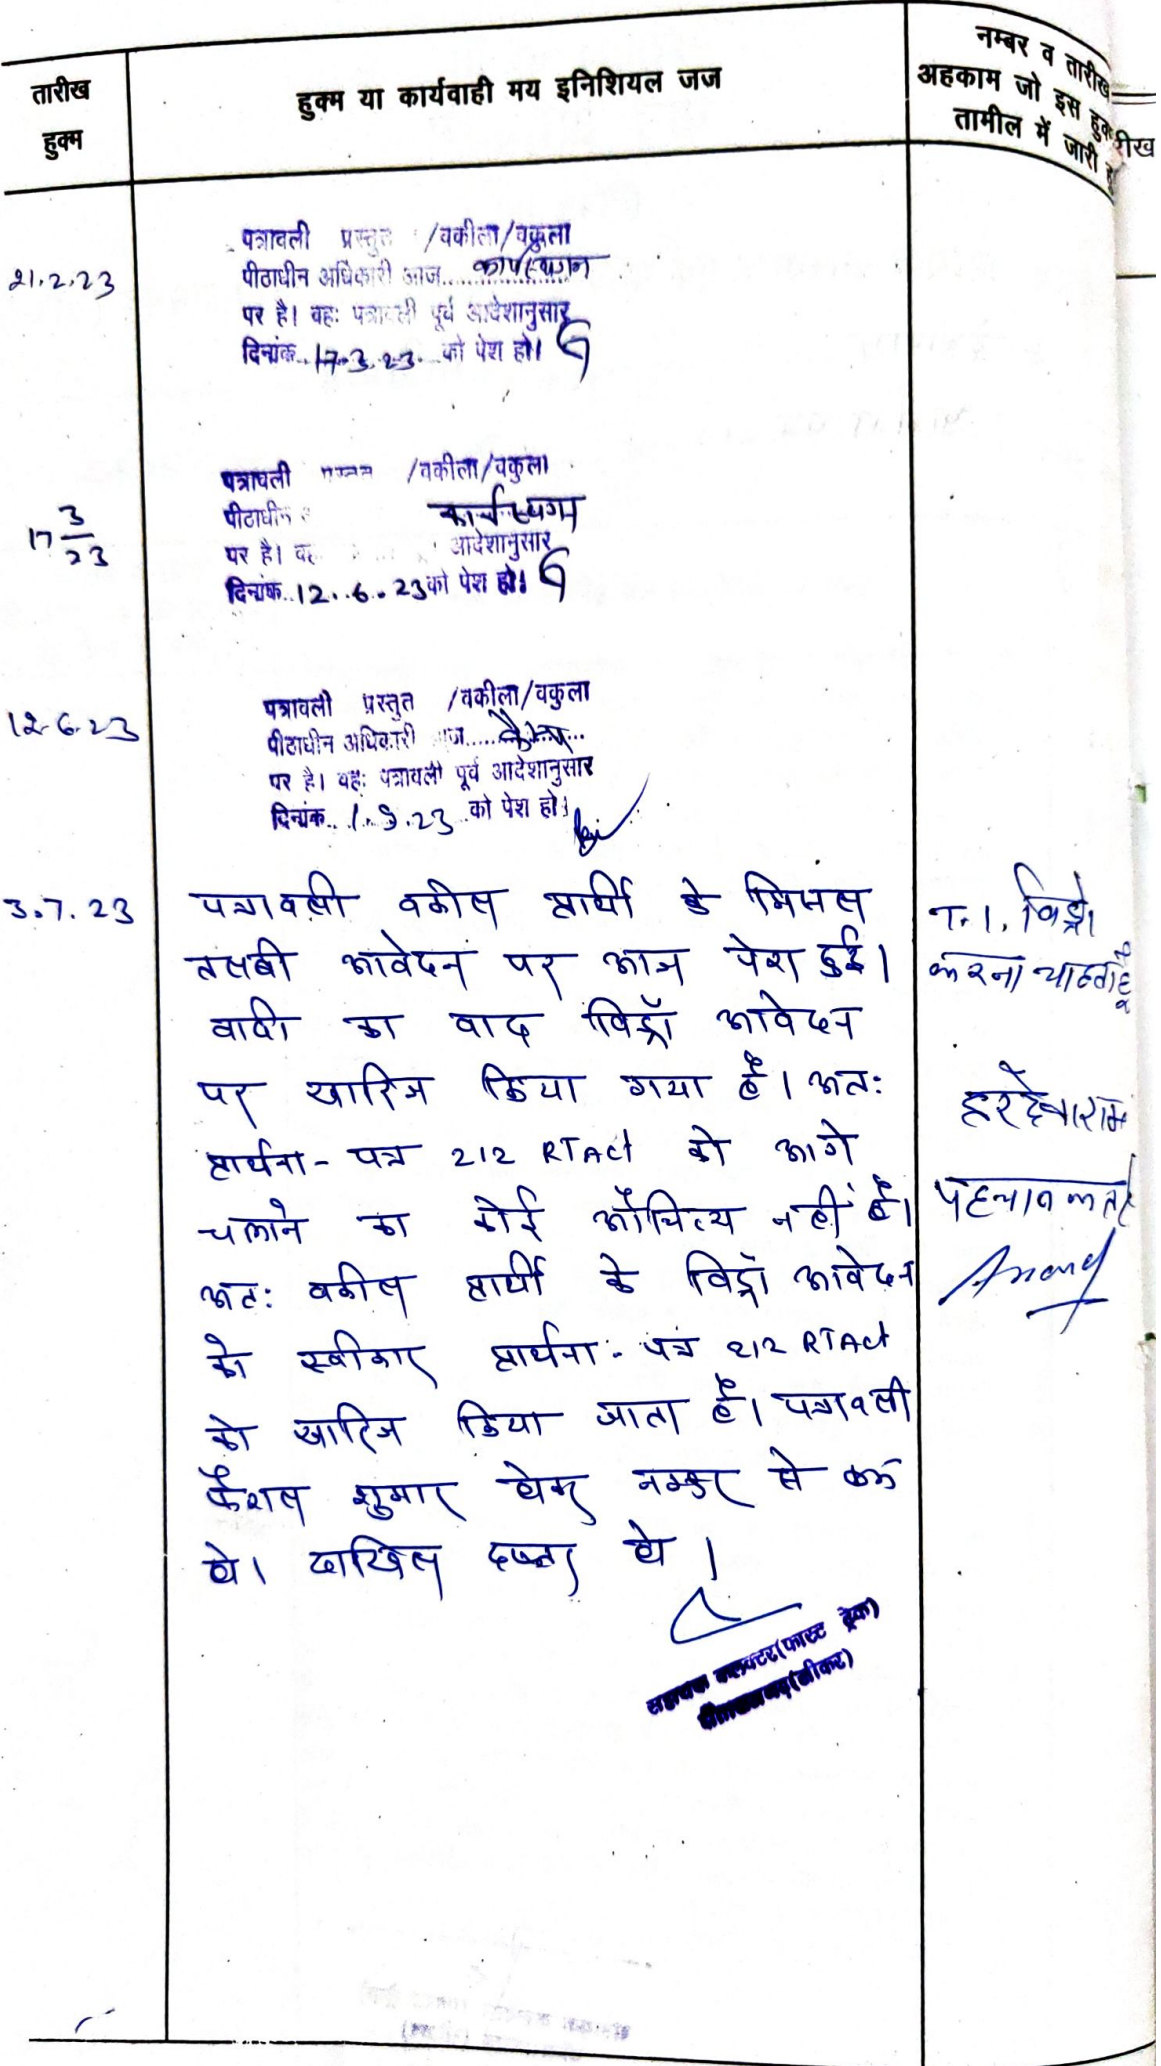 तारीख
हुक्म
हुक्म या कार्यवाही मय इनिशियल जज
नम्बर व तारीख
अहकाम जो इस हुक्म
तामील में जारी
रीख
21.2.23
पत्रावली प्रस्तुत /वकीला/वकुला
पीठाधीन अधिकारी आज कार्यस्थगन
पर है। वहः पत्रावली पूर्व आदेशानुसार
दिनांक 17.3.23 को पेश हो।
17 3/23
पत्रावली प्रस्तुत /वकीला/वकुला
पीठाधीन कार्यस्थगन
पर है। वह आदेशानुसार
दिनांक 12.6.23 को पेश हो।
12.6.23
पत्रावली प्रस्तुत /वकीला/वकुला
पीठाधीन अधिकारी आज
पर है। वहः पत्रावली पूर्व आदेशानुसार
दिनांक 1.9.23 को पेश हो।
3.7.23
पत्रावली वकील प्रार्थी के मिसल
तलबी आवेदन पर आज पेश हुई।
वादी का वाद विड्रॉ आवेदन
पर खारिज किया गया है। अतः
प्रार्थना-पत्र 212 RTAct को आगे
चलाने का कोई औचित्य नहीं है।
अतः वकील प्रार्थी के विड्रॉ आवेदन
को स्वीकार प्रार्थना-पत्र 212 RTAct
को खारिज किया जाता है। पत्रावली
फैशल शुमार होकर नम्बर से कम
हो। दाखिल दफ्तर हो।
T.I. विड्रो
करना चाहता हूँ
हरदेवाराम
पहचान कर्ता
Anand
सहायक कलक्टर(फास्ट ट्रेक)
(सीकर)